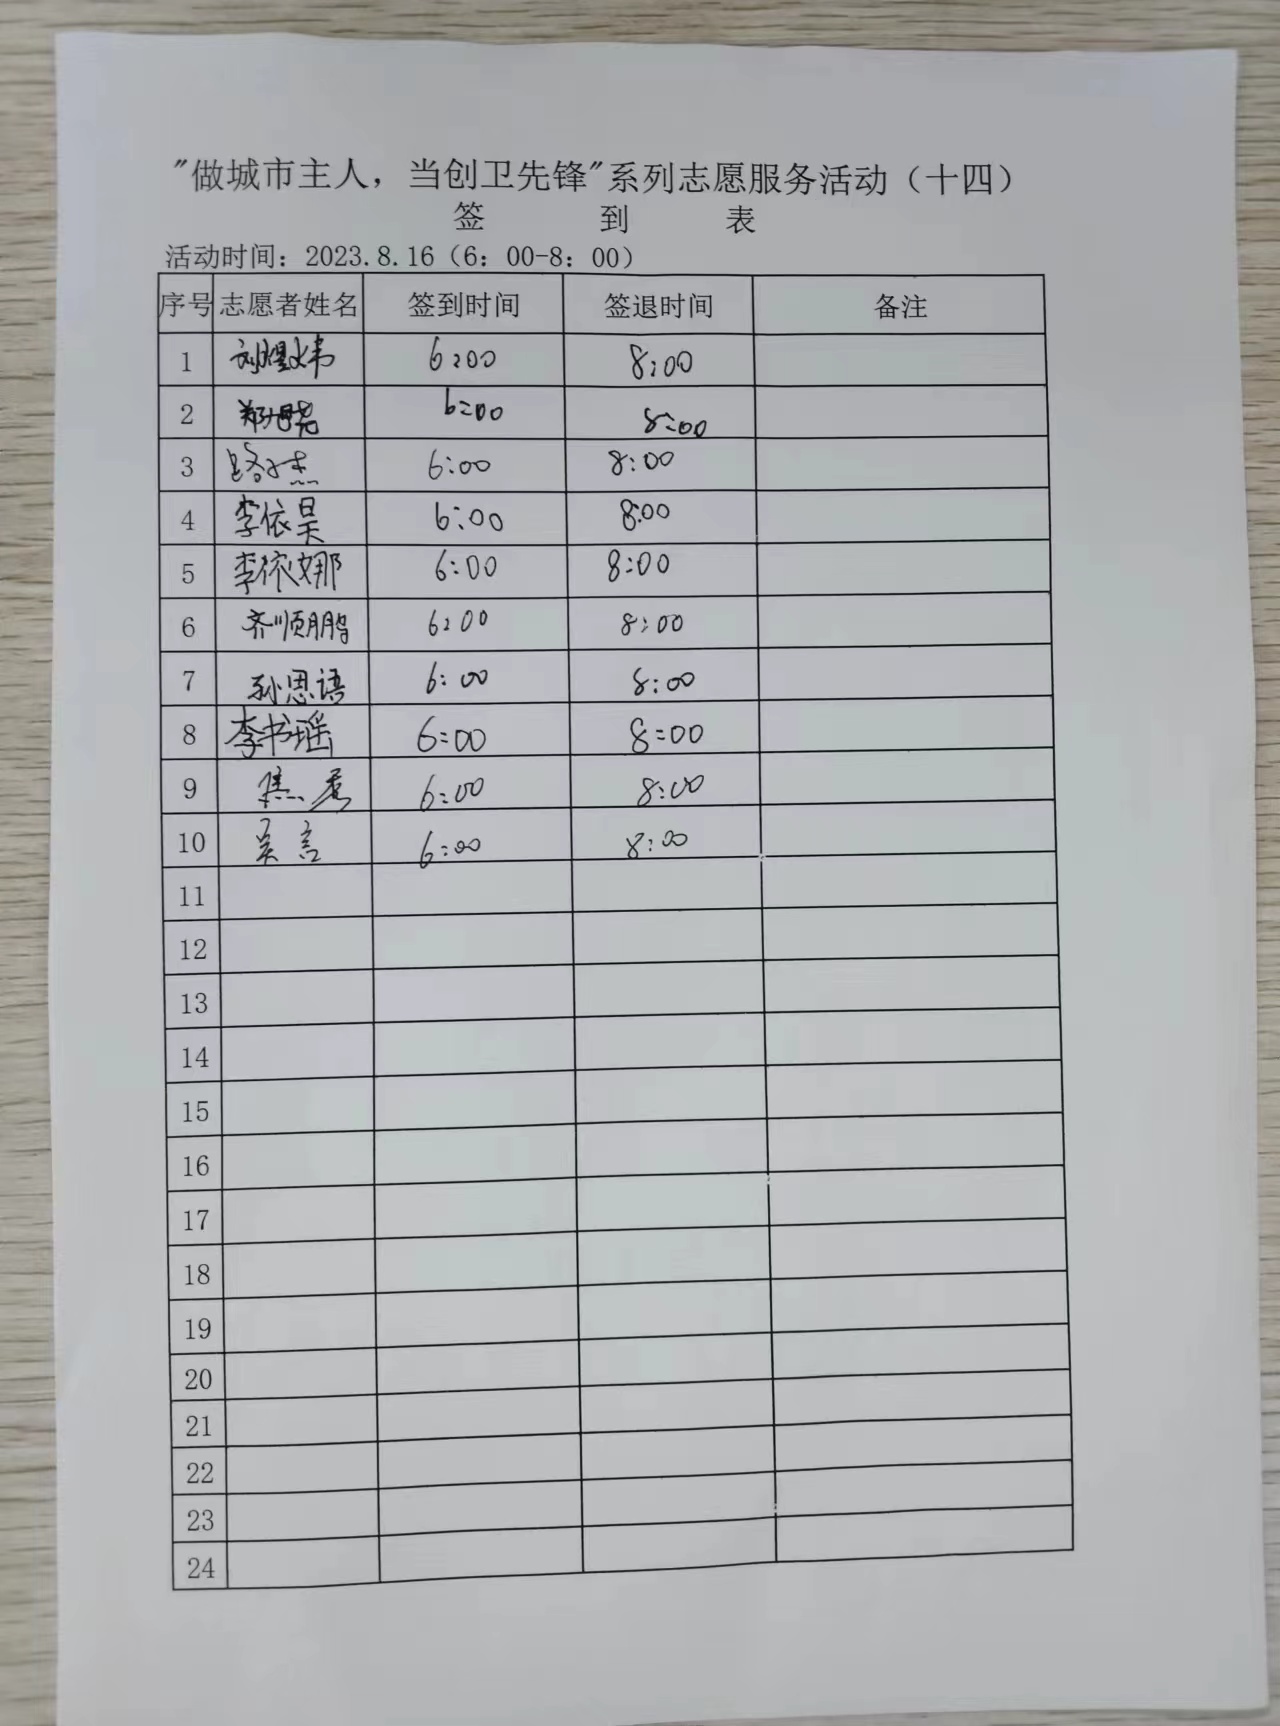 "做城市主人，当创卫先锋"系列志愿服务活动（十四）
签 到 表
活动时间：2023.8.16（6：00-8：00）
序号 志愿者姓名 签到时间 签退时间 备注
1 6:00 8:00
2 6:00 8:00
3 6:00 8:00
4 李依昊 6:00 8:00
5 李依娜 6:00 8:00
6 齐顺鹏 6:00 8:00
7 孙思语 6:00 8:00
8 李书瑶 6:00 8:00
9 6:00 8:00
10 吴言 6:00 8:00
11
12
13
14
15
16
17
18
19
20
21
22
23
24